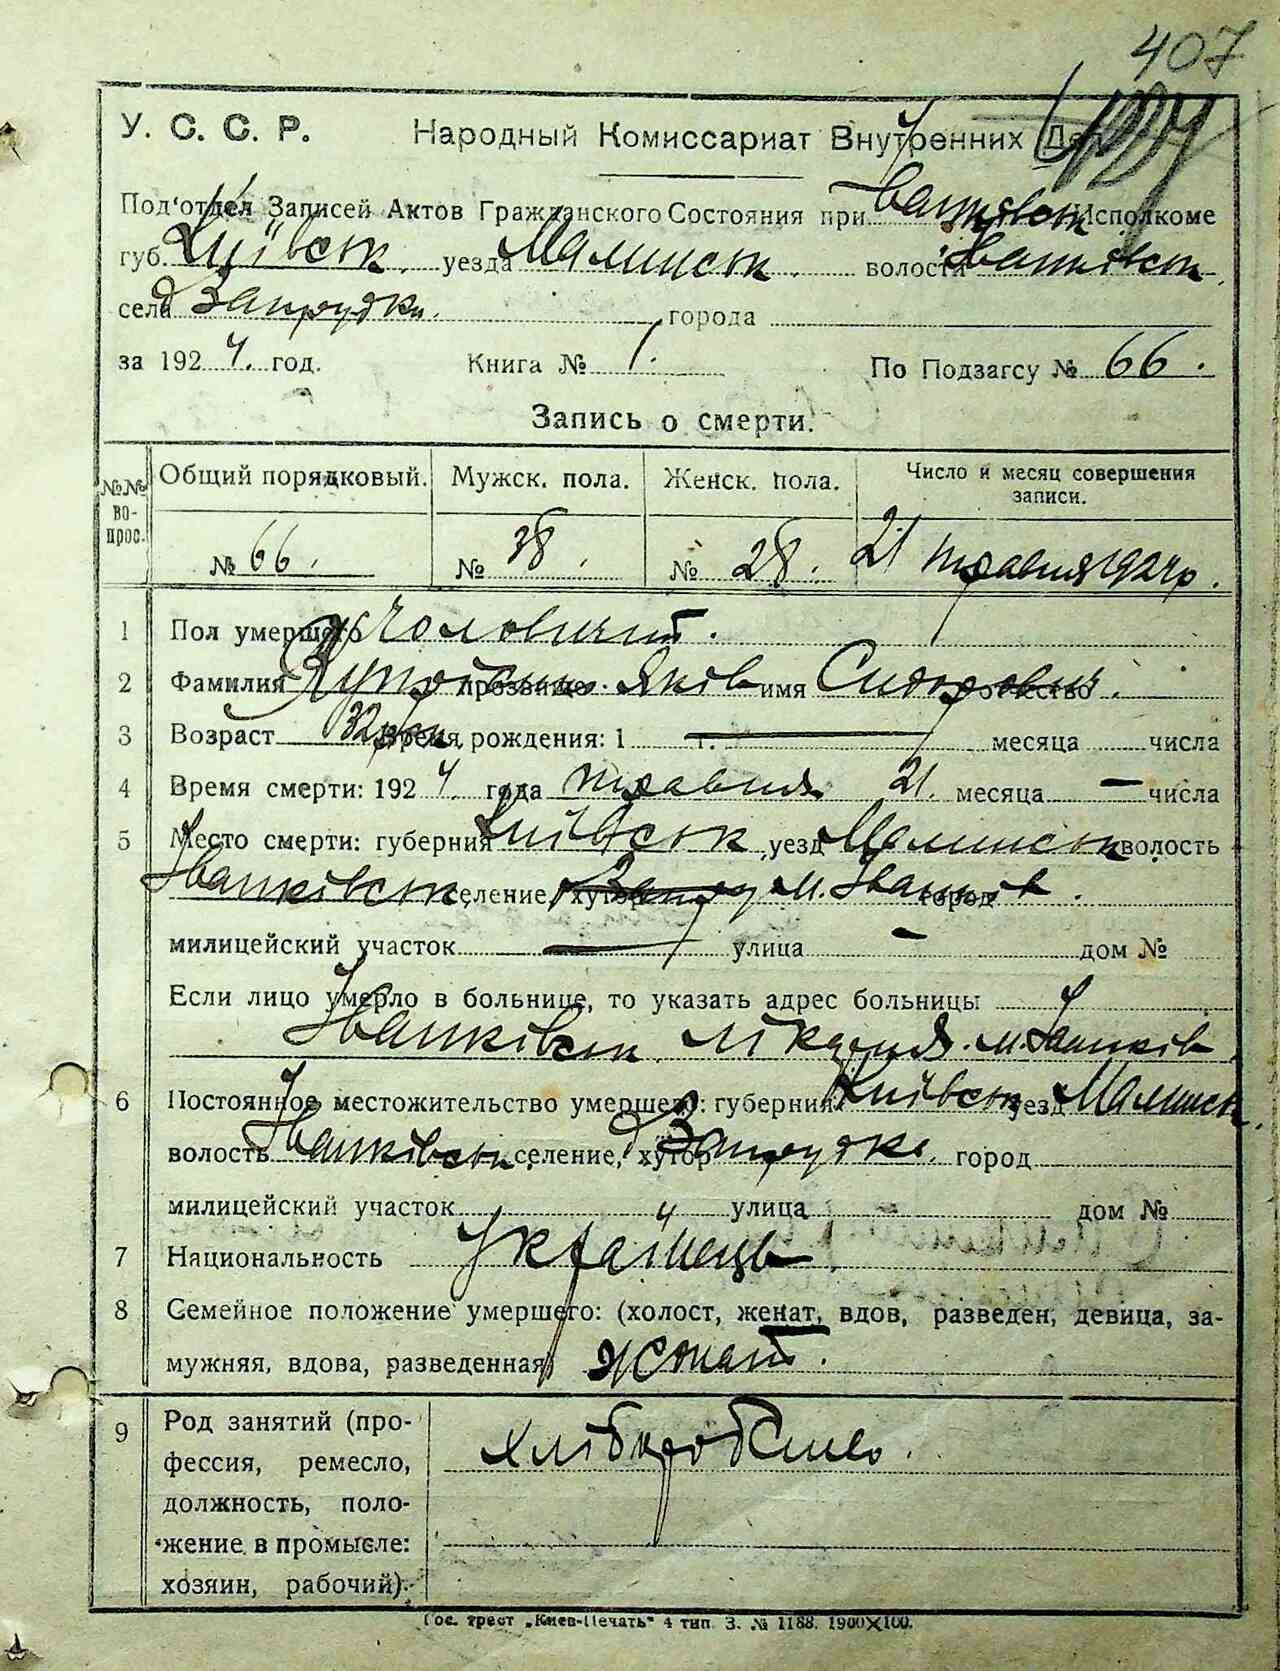 407
У. С. С. Р. Народный Комиссариат Внутренних Дел
Под'отдел Записей Актов Гражданского Состояния при Іванківськ Исполкоме
губ. Київськ. уезда Малинськ. волости Іванківськ.
села Запрудка. города
за 1924. год. Книга № 1. По Подзагсу № 66.
Запись о смерти.
№№ во-прос. Общий порядковый. Мужск. пола. Женск. пола. Число и месяц совершения записи.
№ 66. № 38. № 28. 21 травня 1924 р.
1 Пол умершего чоловичий.
2 Фамилия прозвище Яків имя Сидорович. отчество
3 Возраст 32 время рождения: 1 г. месяца числа
4 Время смерти: 1924 года травня 21. месяца — числа
5 Место смерти: губерния Київськ, уезд Малинськ волость
Іванківськ селение, хутор м. Іванків. город
милицейский участок — улица - дом №
Если лицо умерло в больнице, то указать адрес больницы
Іванківськ. лікарня. м. Іванків
6 Постоянное местожительство умершего: губерния Київськ уезд Малинськ.
волость Іванківськ. селение, хутор Запрудка. город
милицейский участок улица дом №
7 Национальность Українець.
8 Семейное положение умершего: (холост, женат, вдов, разведен, девица, за-
мужняя, вдова, разведенная) жонат.
9 Род занятий (про-
фессия, ремесло,
должность, поло-
жение в промысле:
хозяин, рабочий).
хліборобство.
Гос. трест „Киев-Печать" 4 тип. З. № 1188. 1900×100.